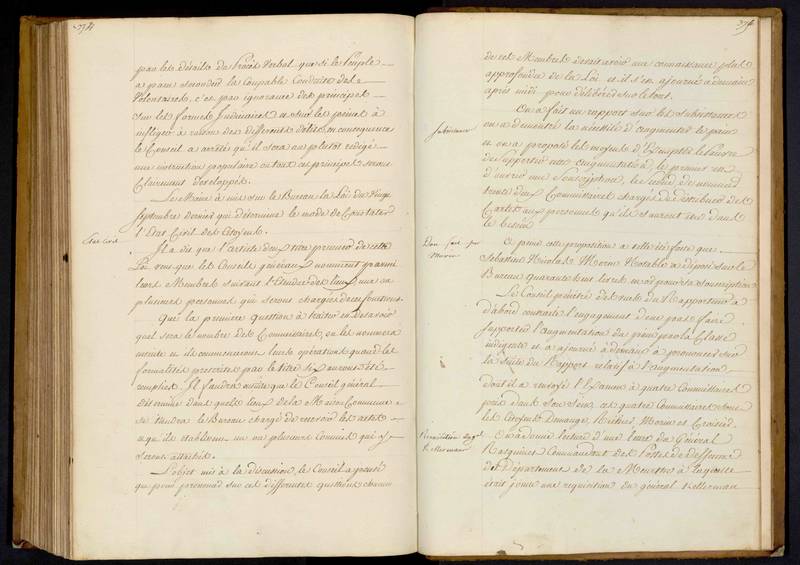 374
par les détails du Procès Verbal que si le Peuple
a paru seconder la Coupable Conduite des
Volontaires, c'est par ignorance des principes
sur les formes Judiciaires et sur les peines à
infliger à raison des differents délits, en consequence
le Conseil a arrêté qu'il sera au plutôt redigé
une instruction populaire ou tous ces principes seront
Clairement développés.
Le Maire a mis sur le Bureau la Loi du Vingt
Septembre dernier qui détermine le mode de Constater
l'Etat Civil des Citoyens.
Etat Civil
Il a dit que l'article deux titre premier de cette
Loi veut que les Conseils généraux nomment parmi
leurs Membres suivant l'Etendue des lieux une ou
plusieurs personnes qui seront chargées de ces fonctions.
Que la premiere question à traiter est de savoir
quel sera le nombre des Commissaires, on les nommera
ensuite et ils commenceront leurs opérations quand les
formalités prescrites par le titre six auront été
remplies. Il faudra ensuite que le Conseil général
détermine dans quels lieux de la Maison Commune
se tiendra le Bureau chargé de recevoir les actes
et qu'ils établissent un ou plusieurs Commis qui y
seront attachés.
L'objet mis à la discussion, le Conseil a pensé
que pour prononcer sur ces differentes questions chacun
375
de ces Membres desirait avoir une connaissance plus
approfondie de la Loi et il s'est ajourné à demain
après midi pour délibérer sur le tout.
Subsistances
On a fait un rapport sur les Subsistances
on a démontré la nécessité d'augmenter le pain
et on a proposé les moyens d'Exempter le Pauvre
de supporter cette augmentation, le premier est
d'ouvrir une Souscription, le second de nommer
trente deux Commissaires chargés de distribuer des
Cartes aux personnes qu'ils sauront être dans
le besoin
Don fait par
Morin
A peine cette proposition a t'elle été faite que
Sebastien Nicolas Morin Notable a déposé sur le
Bureau quarante huit livres en or pour sa souscription
Le Conseil pénétré des vues du Rapporteur a
d'abord contracté l'engagement de ne pas faire
supporter l'augmentation du pain par la Classe
indigente et a ajourné à demain à prononcer sur
la suite du Rapport relatif à l'augmentation
dont il a renvoyé l'Examen à quatre Commissaires
pris dans son sein, ces quatre Commissaires sont
les Citoyens Demange, Morin et Croisié.
Requisition du gal
Kellermann
On a donné lecture d'une lettre du Général
Commandant des Postes de
du Département de la Meurthe à laquelle
était jointe une requisition du général Kellerman